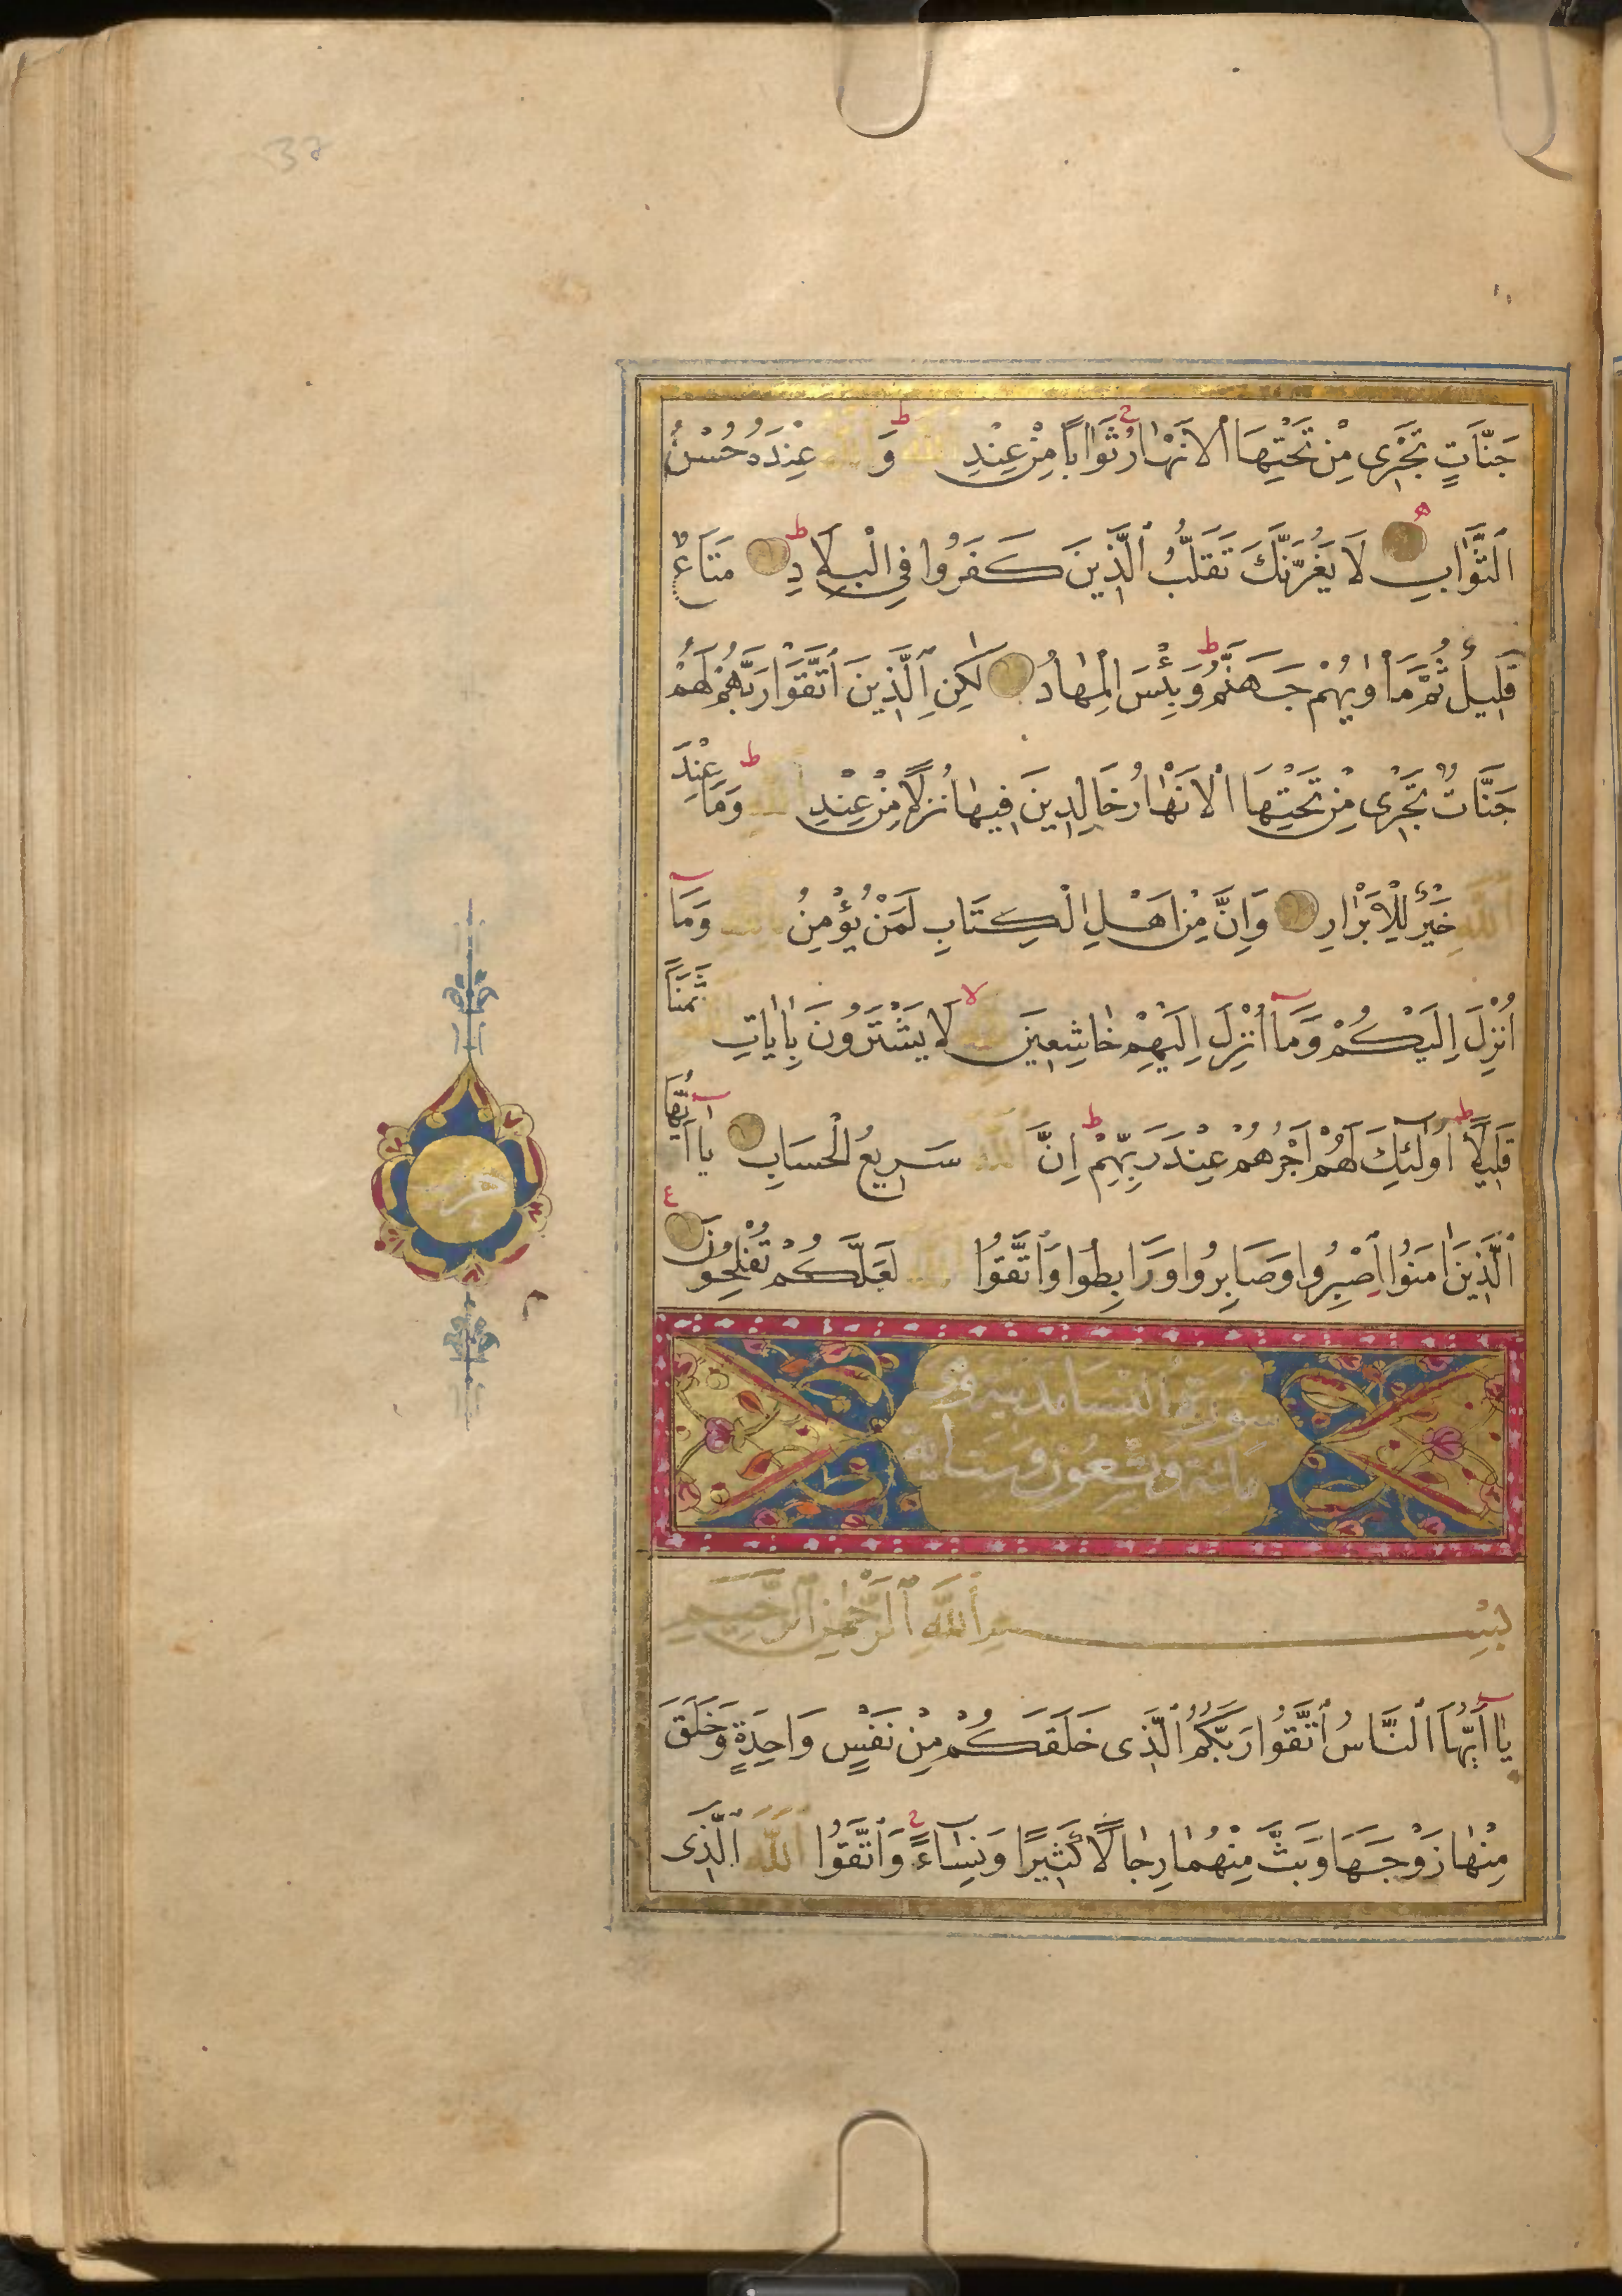 37
جَنَّاتٍ تَجْرِى مِنْ تَحْتِهَا الْاَنْهَارُ ثَوَابًا مِنْ عِنْدِ اللّٰهِ وَاللّٰهُ عِنْدَهُ حُسْنُ
الثَّوَابِ لَا يَغُرَّنَّكَ تَقَلُّبُ الَّذِينَ كَفَرُوا فِي الْبِلَادِ مَتَاعٌ
قَلِيلٌ ثُمَّ مَاْوٰيهُمْ جَهَنَّمُ وَبِئْسَ الْمِهَادُ لٰكِنِ الَّذِينَ اتَّقَوْا رَبَّهُمْ لَهُمْ
جَنَّاتٌ تَجْرِى مِنْ تَحْتِهَا الْاَنْهَارُ خَالِدِينَ فِيهَا نُزُلًا مِنْ عِنْدِ اللّٰهِ وَمَا عِنْدَ
اللّٰهِ خَيْرٌ لِلْاَبْرَارِ وَاِنَّ مِنْ اَهْلِ الْكِتَابِ لَمَنْ يُؤْمِنُ بِاللّٰهِ وَمَا
اُنْزِلَ اِلَيْكُمْ وَمَا اُنْزِلَ اِلَيْهِمْ خَاشِعِينَ لِلّٰهِ لَا يَشْتَرُونَ بِاٰيَاتِ اللّٰهِ ثَمَنًا
قَلِيلًا اُولٰئِكَ لَهُمْ اَجْرُهُمْ عِنْدَ رَبِّهِمْ اِنَّ اللّٰهَ سَرِيعُ الْحِسَابِ يَا اَيُّهَا
الَّذِينَ اٰمَنُوا اصْبِرُوا وَصَابِرُوا وَرَابِطُوا وَاتَّقُوا اللّٰهَ لَعَلَّكُمْ تُفْلِحُونَ
حزب
سورة النسا مدنية وهى
مائة وسبعون وست اية
بِسْمِ اللّٰهِ الرَّحْمٰنِ الرَّحِيمِ
يَا اَيُّهَا النَّاسُ اتَّقُوا رَبَّكُمُ الَّذِى خَلَقَكُمْ مِنْ نَفْسٍ وَاحِدَةٍ وَخَلَقَ
مِنْهَا زَوْجَهَا وَبَثَّ مِنْهُمَا رِجَالًا كَثِيرًا وَنِسَاءً وَاتَّقُوا اللّٰهَ الَّذِى